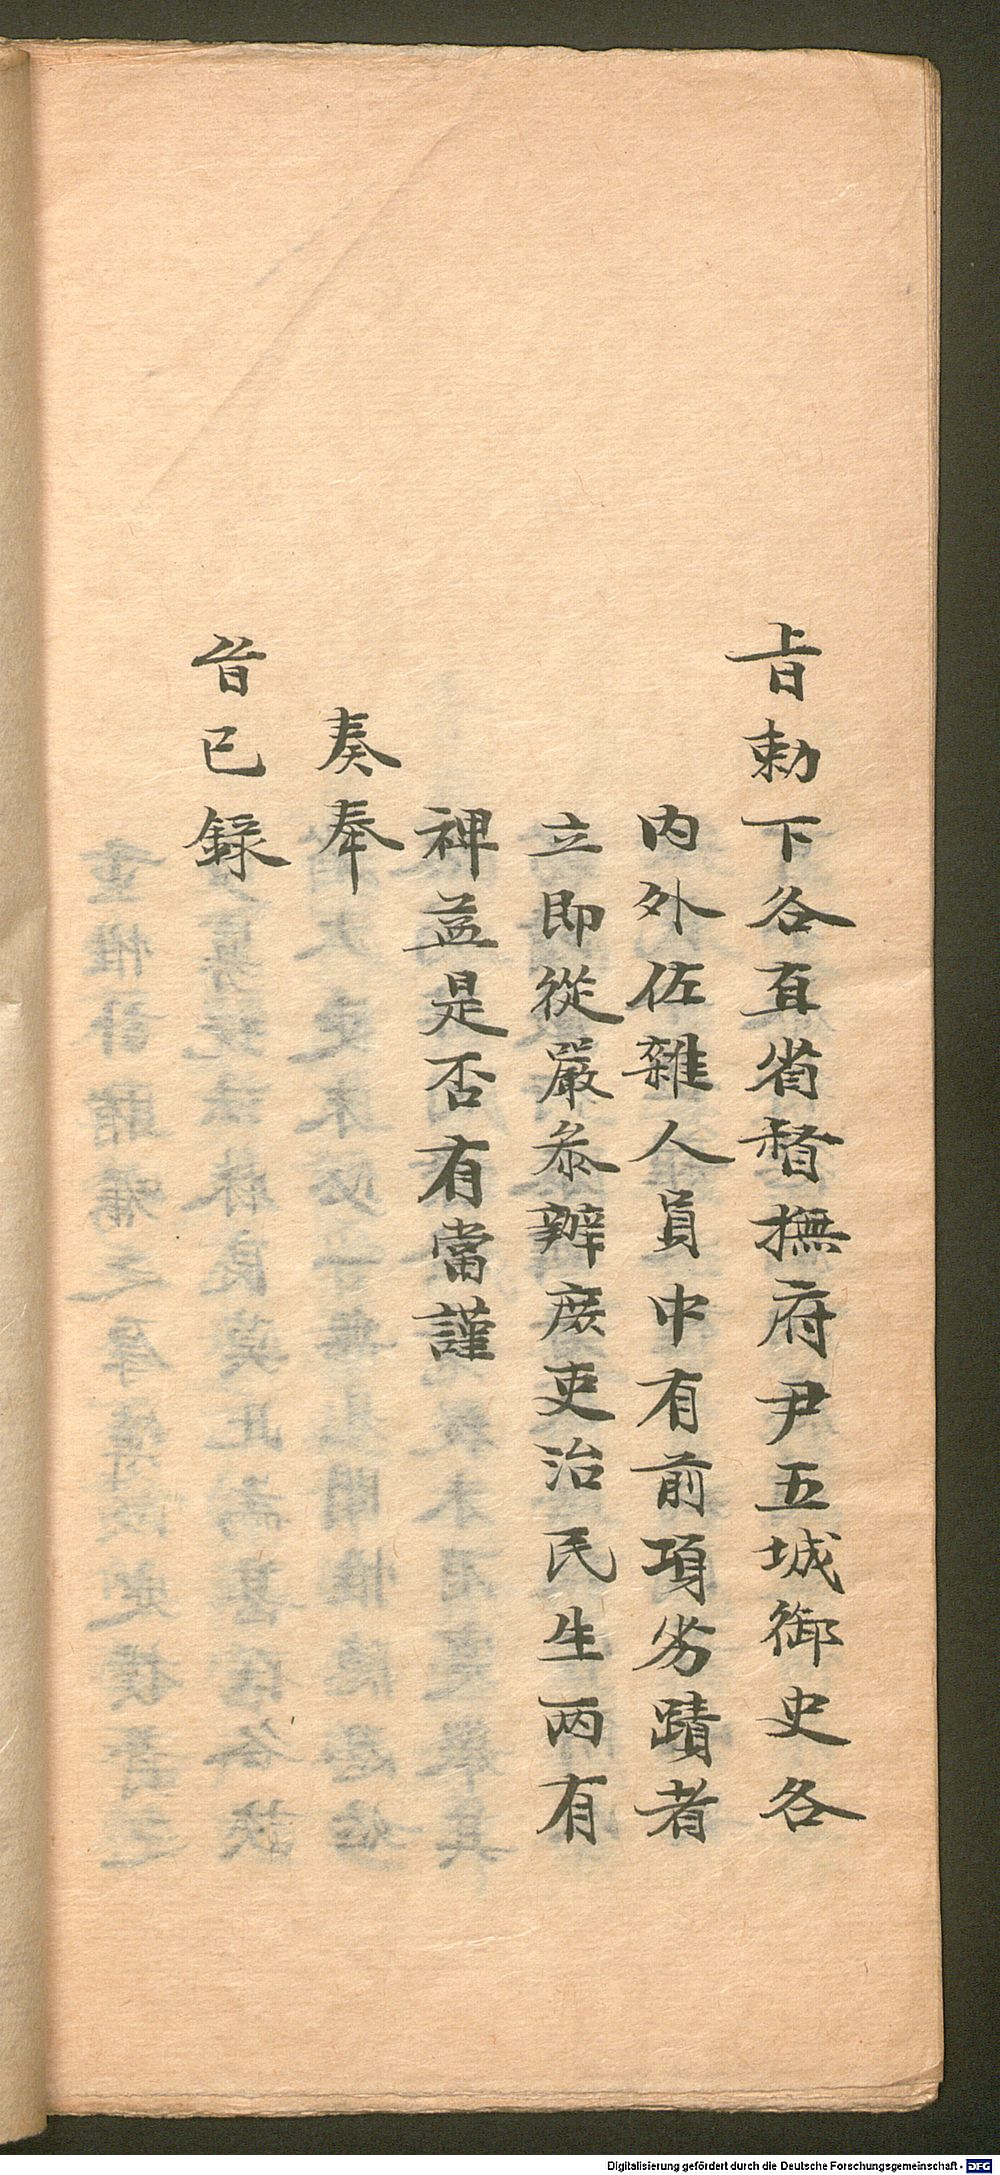 旨勅下各直省督撫府尹五城御史各
内外佐雜人員中有前項劣蹟者
立即從嚴叅辦庶吏治民生两有
裨益是否有當謹
奏奉
旨已録
Digitalisierung gefördert durch die Deutsche Forschungsgemeinschaft - DFG